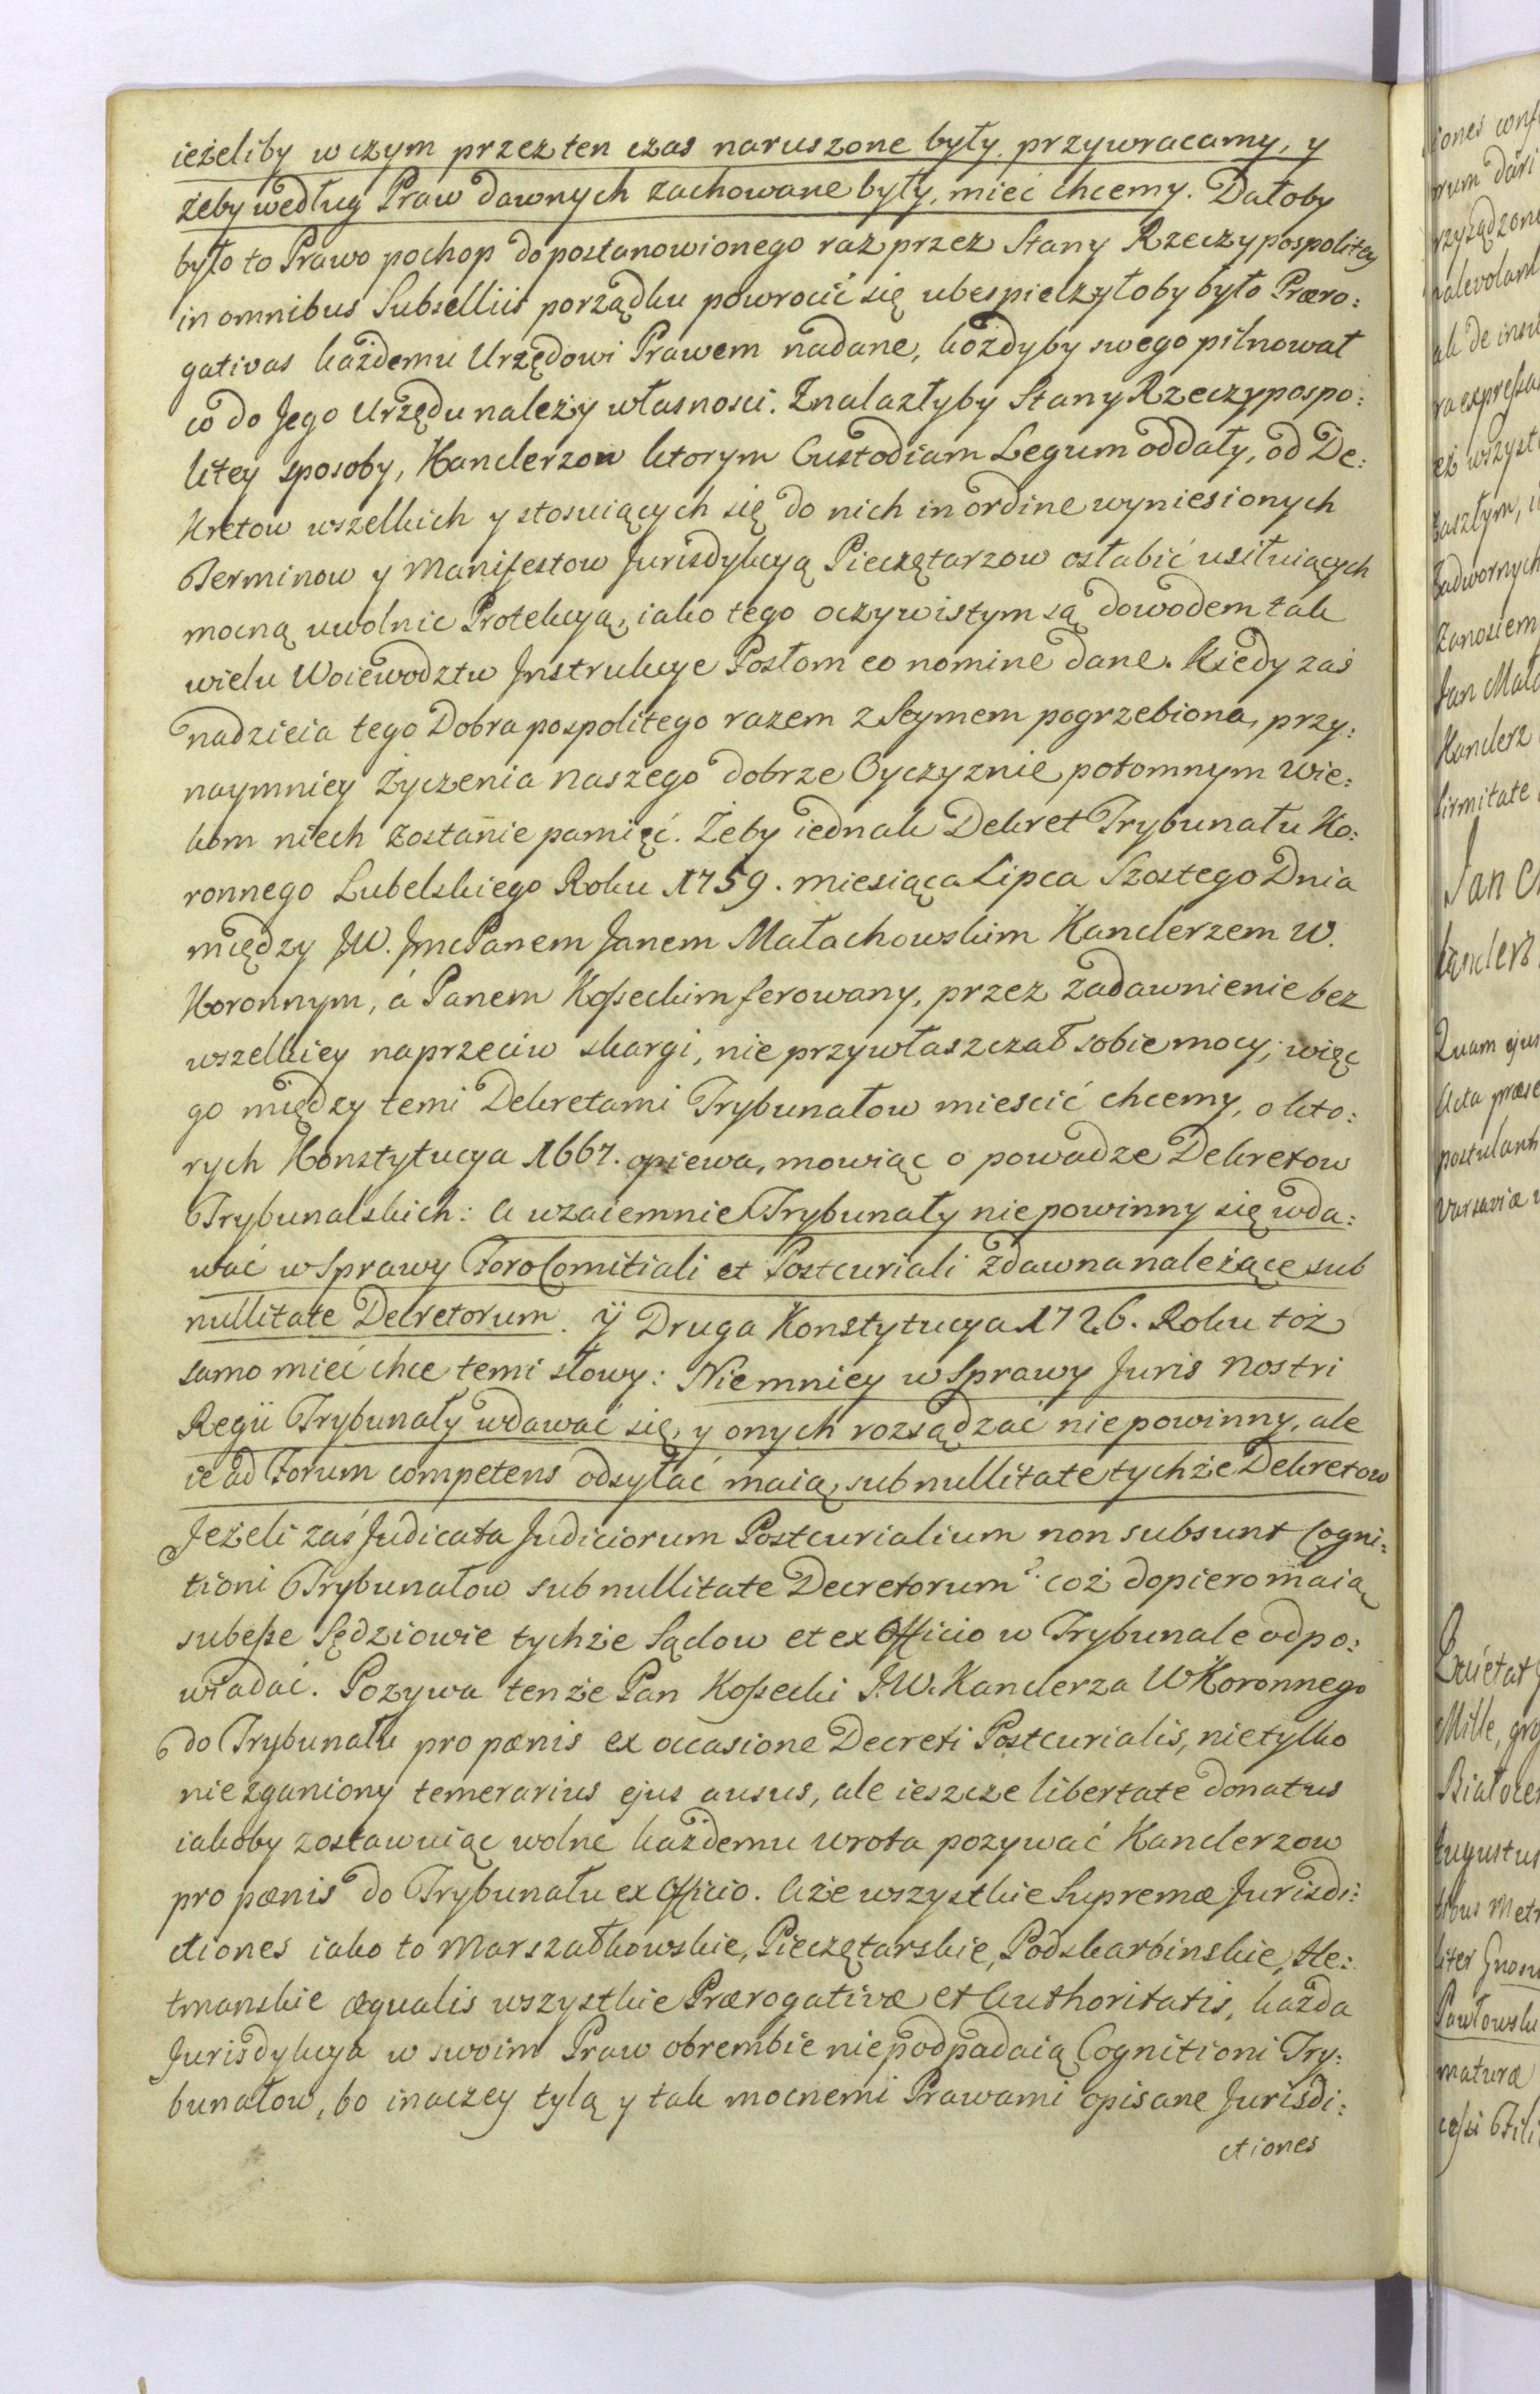 ieżeliby w czym przez ten czas naruszone były przywracamy, y
żeby według Praw dawnych zachowane były, mieć chcemy. Dałoby
było to Prawo pochop do postanowionego raz przez Stany Rzeczypospolitey
in omnibus Subselliis porządku powrocić się ubespieczyłoby było Præro:
gativas każdemu Urzędowi Prawem nadane, każdyby swego pilnował
co do Jego Urzędu należy własnosci. Znalazłyby Stany Rzeczypospo:
litey sposoby, Kanclerzow ktorym Custodiam Legum oddały, od De:
kretow wszelkich y stosuiących się do nich in ordine wyniesionych
Terminow y Manifestow Jurisdykcyą Pieczętarzow osłabić usiłuiących
mocną uwolnic Protekcyą, iako tego oczywistym są dowodem tak
wielu Woiewodztw Jnstrukcye Posłom eo nomine dane. Kiedy zaś
nadzieia tego Dobra pospolitego razem z Seymem pogrzebiona, przy:
naymniey Życzenia naszego dobrze Oyczyznie potomnym wie:
kom niech zostanie pamięć. Żeby iednak Dekret Trybunału Ko:
ronnego Lubelskiego Roku 1759. miesiąca Lipca Szostego Dnia
między JW. Jmc Panem Janem Małachowskim Kanclerzem W.
Koronnym, á Panem Kosseckim ferowany, przez zadawnienie bez
wszelkiey naprzeciw skargi, nie przywłaszczał sobie mocy; więc
go między temi Dekretami Trybunałow miescić chcemy, o kto:
rych Konstytucya 1667. opiewa, mowiąc o powadze Dekretow
Trybunalskich: A wzaiemnie Trybunały nie powinny się wda:
wać w Sprawy Foro Comitiali et Postcuriali zdawna należące sub
nullitate Decretorum. ÿ Druga Konstytucya 1726. Roku toż
samo mieć chce temi słowy: Niemniey w Sprawy Juris nostri
Regii Trybunały wdawać się, y onych rozsądzać nie powinny, ale
ie ad Forum competens odsyłać maią, sub nullitate tychże Dekretow
Jeżeli zaś Judicata Judiciorum Postcurialium non subsunt Cogni:
tioni Trybunałow sub nullitate Decretorum? coż dopiero maią
subesse Sędziowie tychże Sądow et ex Officio w Trybunale odpo:
wiadać. Pozywa tenże Pan Kossecki J.W. Kanclerza W Koronnego
do Trybunału pro pænis ex occasione Decreti Postcurialis, nie tylko
nie zganiony temerarius ejus ausus, ale ieszcze libertate donatus
iakoby zostawuiąc wolne każdemu wrota pozywać Kanclerzow
pro pænis do Trybunału ex Officio. A że wszystkie Supremæ Jurisdi:
ctiones iako to Marszałkowskie, Pieczętarskie, Podskarbinskie, He:
tmanskie æqualis wszystkie Prærogativæ et Authoritatis, każda
Jurisdykcya w swoim Praw obrembie nie podpadaią Cognitioni Try:
bunałow, bo inaczey tylą y tak mocnemi Prawami opisane Jurisdi:
ctiones